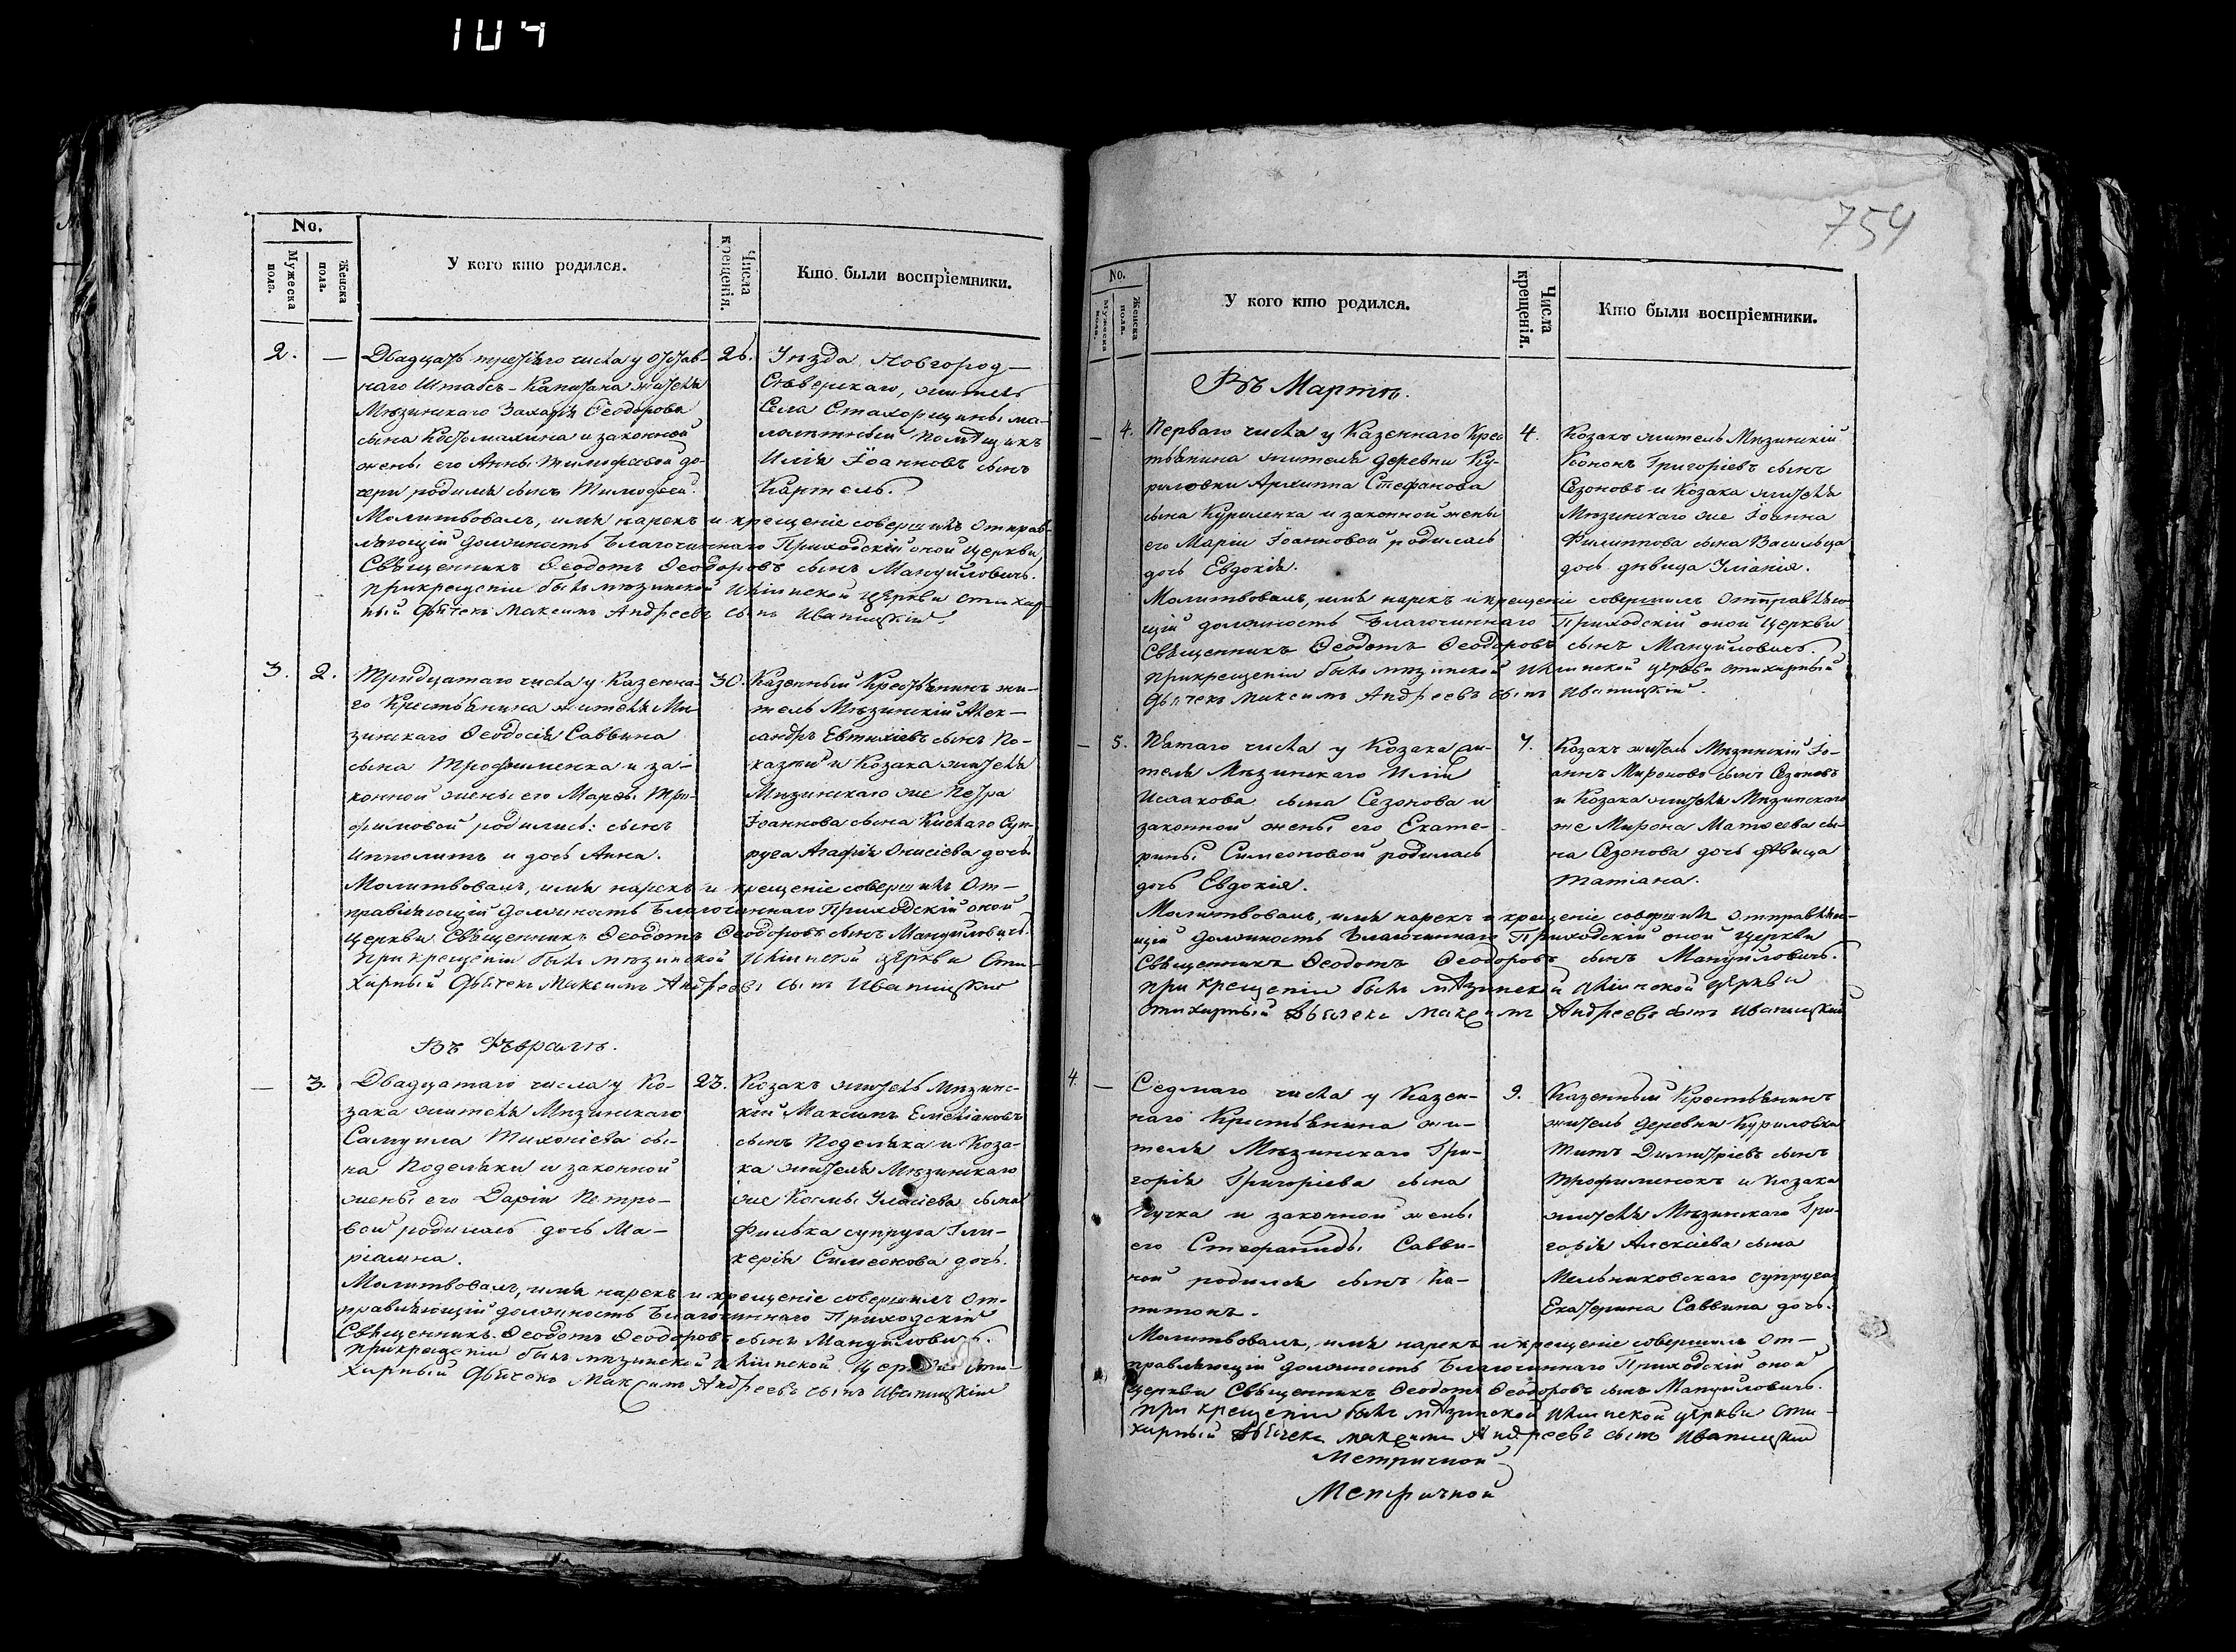 104
No.
Мужеска пола.
Женска пола.
У кого кто родился.
Числа крещенія.
Кто были воспріемники.
2. —
Двадцать третьяго числа у отстав-
наго Штабсъ-Капитана жителя
Мѣзинскаго Захарія Ѳеодорова
сына Костомахина и законной
жены его Анны Тимофѣевой до-
чери родился сынъ Тимофей.
26.
Уѣзда Новгород-
Сѣверскаго, житель
Села Стахорщины ма-
лолѣтный помѣщикъ
Илія Іоанновъ сынъ
Картель.
Молитвовалъ, имя нарекъ и крещеніе совершилъ отправ-
ляющій должность Благочиннаго Приходскій оной церкви
Священникъ Ѳеодотъ Ѳеодоровъ сынъ Мануиловичъ.
При крещеніи былъ мѣзинской Иліинской церкви стихар-
ный Дьячекъ Максимъ Андреевъ сынъ Иваницкій.
3. 2.
Тридцатаго числа у Казенна-
го Крестьянина жителя Мѣ-
зинскаго Ѳеодосія Саввина
сына Трофименка и за-
конной жены его Марѳы Тро-
фимовой родились: сынъ
Ипполитъ и дочь Анна.
30.
Казенный Крестьянинъ жи-
тель Мѣзинскій Алек-
сандръ Евтихіевъ сынъ По-
казтій и Козака жителя
Мѣзинскаго же Петра
Іоаннова сына Кислаго суп-
руга Агафія Онисіева дочь.
Молитвовалъ, имя нарекъ и крещеніе совершилъ От-
правляющій должность Благочиннаго Приходскій оной
церкви Священникъ Ѳеодотъ Ѳеодоровъ сынъ Мануиловичъ.
При крещеніи былъ мѣзинской Иліинской церкви Сти-
харный Дьячекъ Максимъ Андреевъ сынъ Иваницкій
Въ Февралѣ.
— 3.
Двадцатаго числа у Ко-
зака жителя Мѣзинскаго
Самуила Тихоніева сы-
на Поделяки и законной
жены его Даріи Петро-
вой родилась дочь Ма-
ріамна.
23.
Козакъ житель Мѣзинс-
кій Максимъ Емеліановъ
сынъ Поделяка и Коза-
ка жителя Мѣзинскаго
же Космы Уласіева сына
Филька супруга Гли-
керія Симеонова дочь.
Молитвовалъ, имя нарекъ и крещеніе совершилъ От-
правляющій должность Благочиннаго Приходскій
Священникъ Ѳеодотъ Ѳеодоровъ сынъ Мануиловичъ.
При крещеніи былъ мѣзинской Иліинской церкви сти-
харный Дьячекъ Максимъ Андреевъ сынъ Иваницкій
754
No.
Мужеска пола.
Женска пола.
У кого кто родился.
Числа крещенія.
Кто были воспріемники.
Въ Мартѣ.
— 4.
Перваго числа у Казеннаго Крес
тьянина жителя деревни Ку-
риловки Архиппа Стефанова
сына Куриленка и законной жены
его Маріи Іоанновой родилась
дочь Евдокія.
4.
Козакъ житель Мѣзинскій
Кононъ Григоріевъ сынъ
Сезоновъ и Козака жителя
Мѣзинскаго же Іоанна
Филиппова сына Васильца
дочь дѣвица Уліанія.
Молитвовалъ, имя нарекъ и крещеніе совершилъ Отправляю-
щій должность Благочиннаго Приходскій оной церкви
Священникъ Ѳеодотъ Ѳеодоровъ сынъ Мануиловичъ.
При крещеніи былъ мѣзинской Иліинской церкви стихарный
Дьячекъ Максимъ Андреевъ сынъ Иваницкій.
— 5.
Пятаго числа у Козака жи-
теля Мѣзинскаго Иліи
Исаакова сына Сезонова и
законной жены его Екате-
рины Симеоновой родилась
дочь Евдокія.
7.
Козакъ житель Мѣзинскій Іо-
аннъ Мироновъ сынъ Сезоновъ
и Козака жителя Мѣзинскаго
же Мирона Матѳеева сы-
на Сезонова дочь дѣвица
Татіана.
Молитвовалъ, имя нарекъ и крещеніе совершилъ Отправляю-
щій должность Благочиннаго Приходскій оной церкви
Священникъ Ѳеодотъ Ѳеодоровъ сынъ Мануиловичъ.
При крещеніи былъ мѣзинской Иліинской церкви
стихарный Дьячекъ Максимъ Андреевъ сынъ Иваницкій
4. —
Седмаго числа у Казен-
наго Крестьянина жи-
теля Мѣзинскаго Гри-
горія Григоріева сына
Пучка и законной жены
его Стефаниды Савви-
ной родился сынъ Ка-
питонъ.
9.
Казенный Крестьянинъ
житель деревни Куриловки
Титъ Димитріевъ сынъ
Трофименокъ и Козака
жителя Мѣзинскаго Гри-
горія Алексіева сына
Мельниковскаго супруга
Екатерина Саввина дочь.
Молитвовалъ, имя нарекъ и крещеніе совершилъ От-
правляющій должность Благочиннаго Приходскій оной
церкви Священникъ Ѳеодотъ Ѳеодоровъ сынъ Мануиловичъ.
При крещеніи былъ мѣзинской Иліинской церкви сти-
харный Дьячекъ Максимъ Андреевъ сынъ Иваницкій
Метричной
Метричной